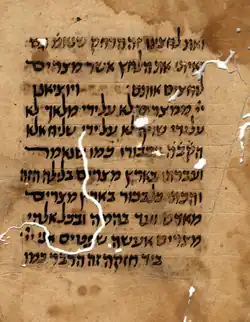 ואת לחצינו זה הדחק שנאמר
ראיתי את הלחץ אשר מצרים
לחצים אותם ויוציאנו
יי ממצרים לא על ידי מלאך לא
על ידי שרף לא על ידי שליח אלא
הקבה בכבודו כמו שנאמר
ועברתי בארץ מצרים בלילה הזה
והכתי כל בכור בארץ מצרים
מאדם ועד בהמה ובכל אלהי
מצרים אעשה שפטים אני יי
ביד חזקה זה הדבר כמו